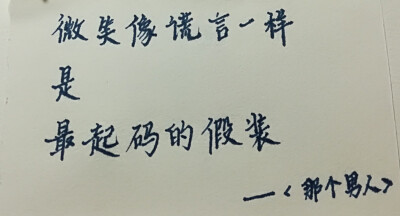 微笑像谎言一样
是
最起码的假装
—《那个男人》